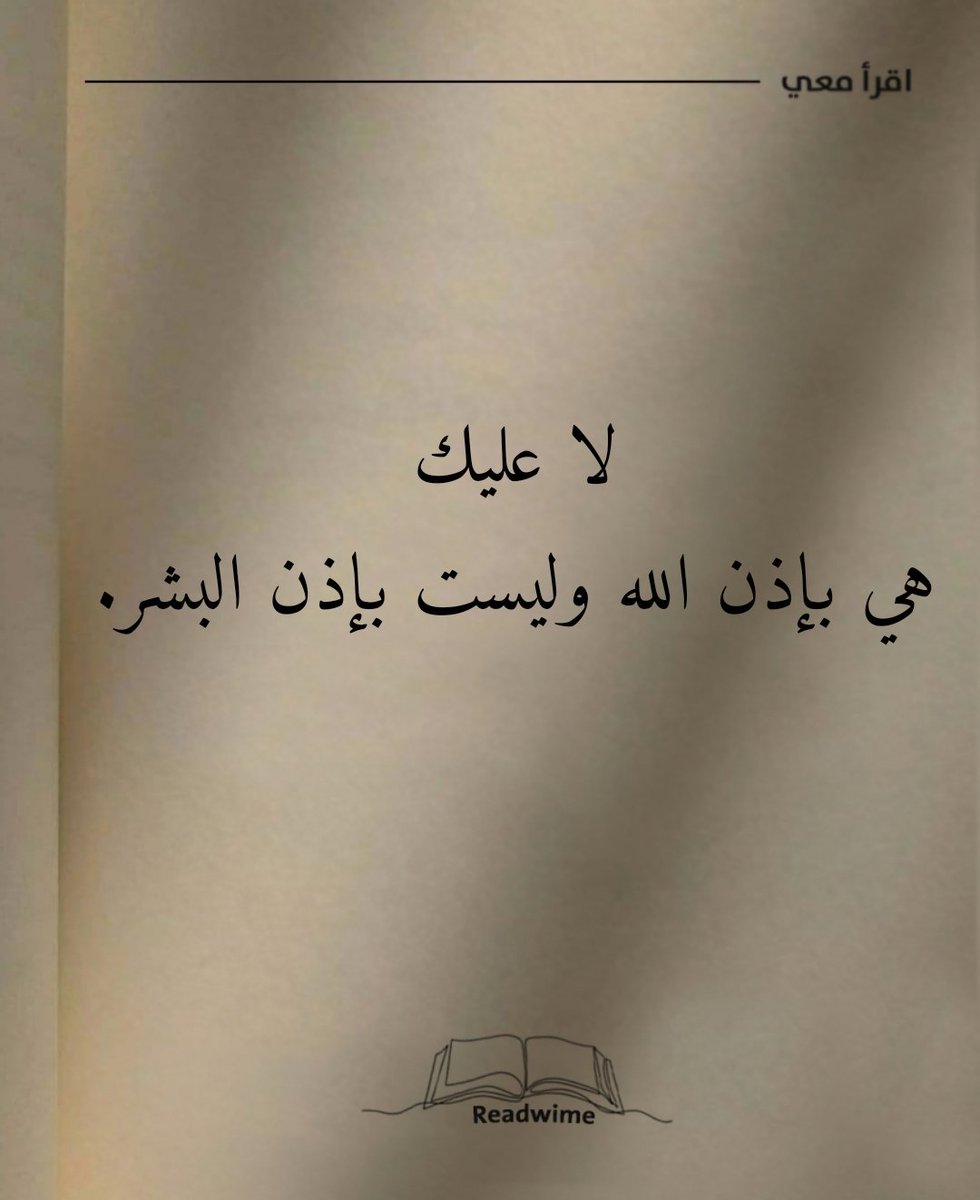 اقرأ معي
لا عليك
هي بإذن الله وليست بإذن البشر.
Readwime